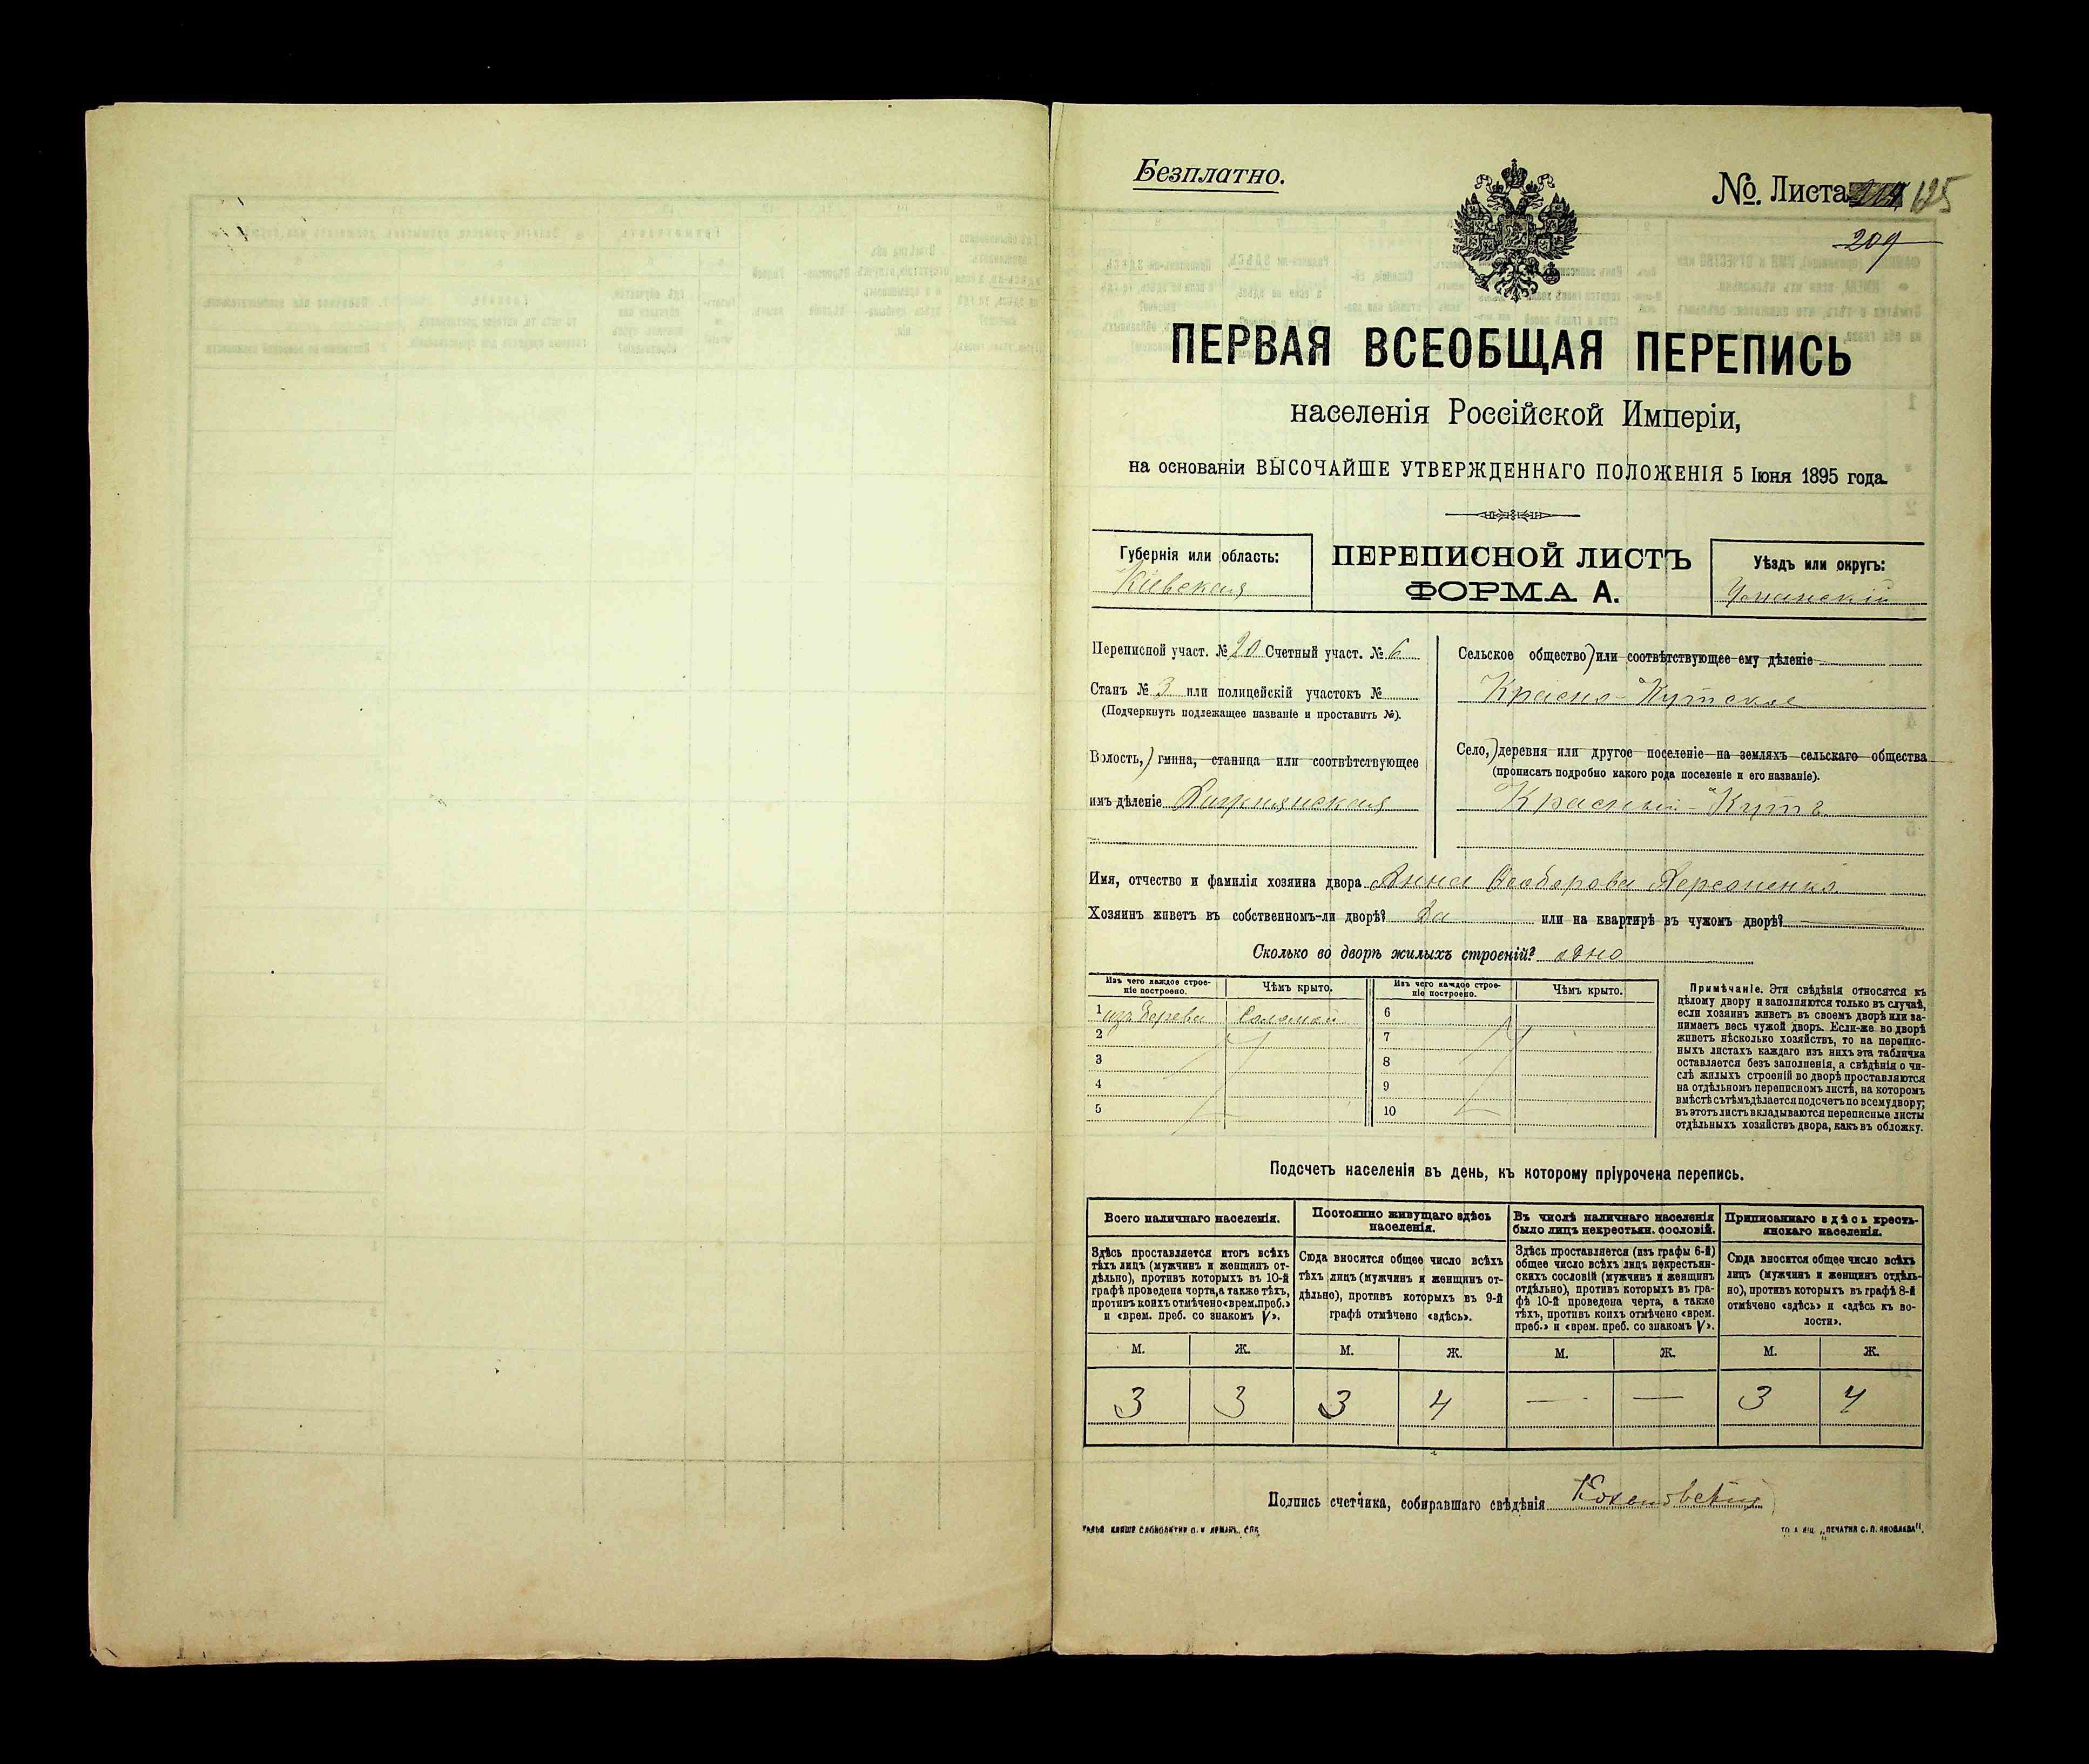 Безплатно.
№. Листа 125
209
ПЕРВАЯ ВСЕОБЩАЯ ПЕРЕПИСЬ
населенія Россійской Имперіи,
на основаніи ВЫСОЧАЙШЕ УТВЕРЖДЕННАГО ПОЛОЖЕНІЯ 5 Іюня 1895 года.
Губернія или область:
Кіевская
ПЕРЕПИСНОЙ ЛИСТЪ
ФОРМА А.
Уѣздъ или округъ:
Уманскій
Переписной участ. № 20 Счетный участ. № 6
Станъ № 3 или полицейскій участокъ №
(Подчеркнуть подлежащее названіе и проставить №).
Волость, гмина, станица или соотвѣтствующее
имъ дѣленіе
Сельское общество или соотвѣтствующее ему дѣленіе
Красно-Кутское
Село, деревня или другое поселеніе на земляхъ сельскаго общества
(прописать подробно какого рода поселеніе и его названіе).
Красный-Кутъ
Имя, отчество и фамилія хозяина двора Анна Ѳеодорова
Хозяинъ живетъ въ собственномъ-ли дворѣ? Да или на квартирѣ въ чужомъ дворѣ?
Сколько во дворѣ жилыхъ строеній? одно
Изъ чего каждое строе-
ніе построено.
Чѣмъ крыто.
Изъ чего каждое строе-
ніе построено.
Чѣмъ крыто.
1 изъ дерева Соломой 6
2 7
3 8
4 9
5 10
Примѣчаніе. Эти свѣдѣнія относятся къ
цѣлому двору и заполняются только въ случаѣ,
если хозяинъ живетъ въ своемъ дворѣ или за-
нимаетъ весь чужой дворъ. Если-же во дворѣ
живетъ нѣсколько хозяйствъ, то на перепис-
ныхъ листахъ каждаго изъ нихъ эта табличка
оставляется безъ заполненія, а свѣдѣнія о чи-
слѣ жилыхъ строеній во дворѣ проставляются
на отдѣльномъ переписномъ листѣ, на которомъ
вмѣстѣ съ тѣмъ дѣлается подсчетъ по всему двору;
въ этотъ листъ вкладываются переписные листы
отдѣльныхъ хозяйствъ двора, какъ въ обложку.
Подсчетъ населенія въ день, къ которому пріурочена перепись.
Всего наличнаго населенія.
Здѣсь проставляется итогъ всѣхъ
тѣхъ лицъ (мужчинъ и женщинъ от-
дѣльно), противъ которыхъ въ 10-й
графѣ проведена черта, а также тѣхъ,
противъ коихъ отмѣчено «врем. преб.»
и «врем. преб. со знакомъ V».
Постоянно живущаго здѣсь
населенія.
Сюда вносится общее число всѣхъ
тѣхъ лицъ (мужчинъ и женщинъ от-
дѣльно), противъ которыхъ въ 9-й
графѣ отмѣчено «здѣсь».
Въ числѣ наличнаго населенія
было лицъ некрестьян. сословій.
Здѣсь проставляется (изъ графы 6-й)
общее число всѣхъ лицъ некрестьян-
скихъ сословій (мужчинъ и женщинъ
отдѣльно), противъ которыхъ въ гра-
фѣ 10-й проведена черта, а также
тѣхъ, противъ коихъ отмѣчено «врем.
преб.» и «врем. преб. со знакомъ V».
Приписаннаго здѣсь кресть-
янскаго населенія.
Сюда вносится общее число всѣхъ
лицъ (мужчинъ и женщинъ отдѣль-
но), противъ которыхъ въ графѣ 8-й
отмѣчено «здѣсь» и «здѣсь къ во-
лости».
М. Ж. М. Ж. М. Ж. М. Ж.
3 3 3 4 — — 3 4
Подпись счетчика, собиравшаго свѣдѣнія